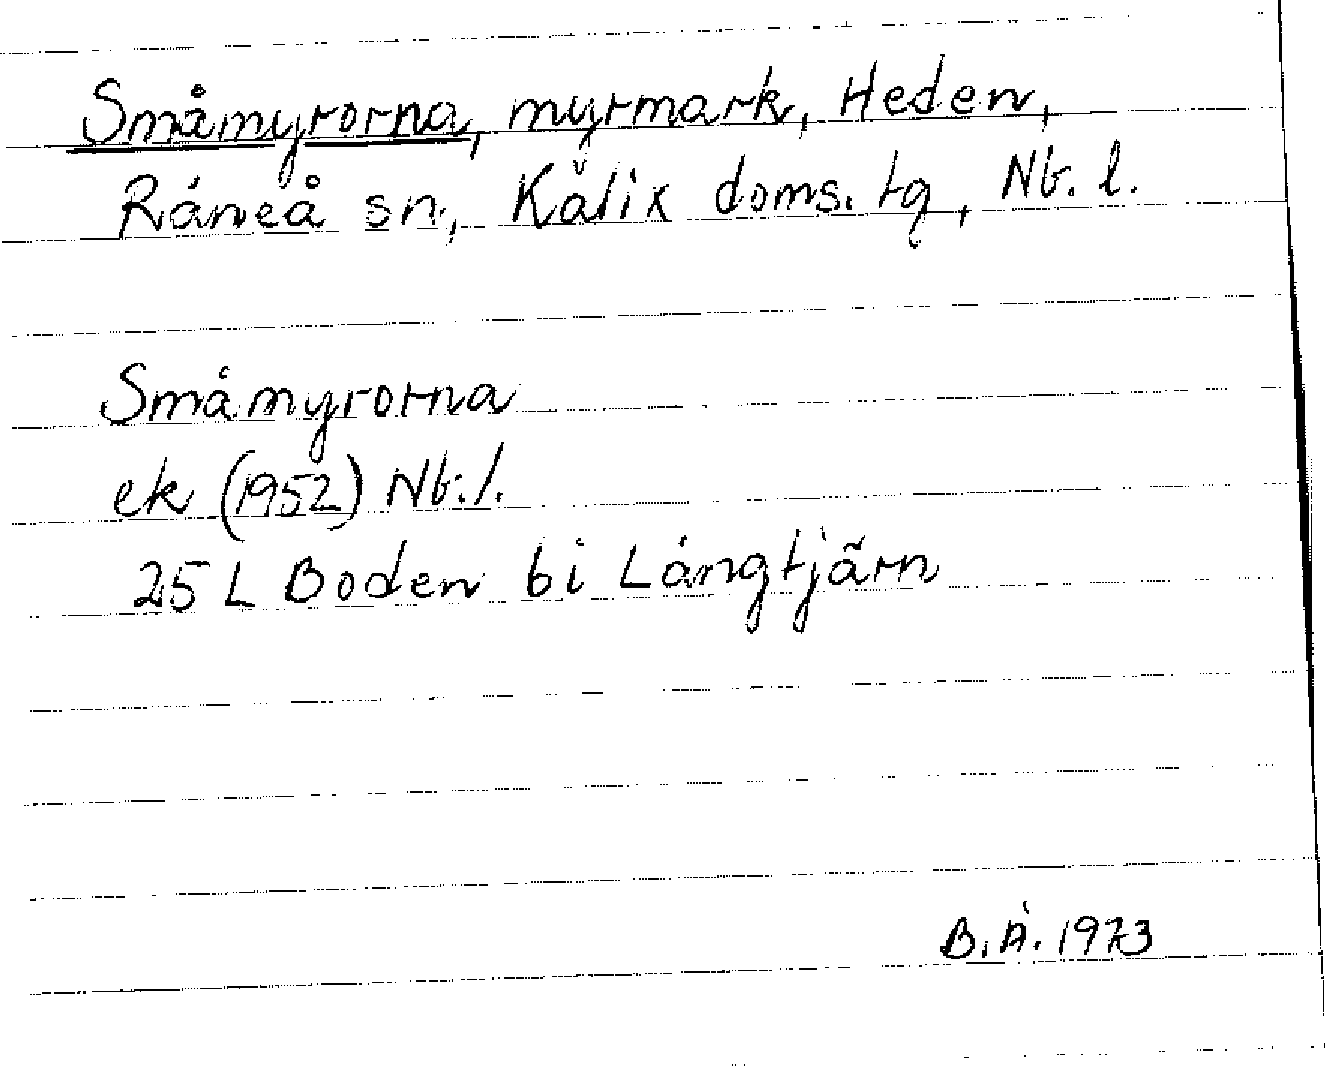 Småmyrorna, myrmark, Heden,
Råneå sn, Kalix doms. tg, Nb. l.
Småmyrorna
ek (1952) Nb. l.
25 L Boden bi Långtjärn
B.Å. 1973